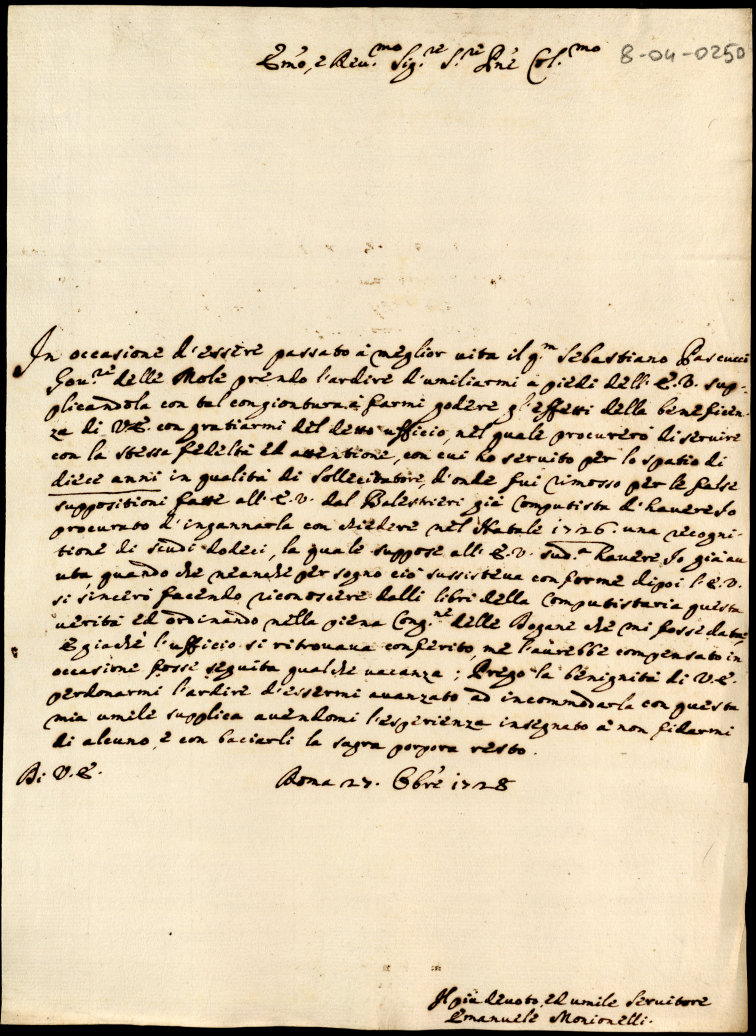 Em̃o, e Reu.mo Sig.re S.re Pñe Col.mo 8-04-0250
In occasione d'essere passato à meglior uita il q.m Sebastiano Pascucci
Gou.re delle Mole prendo l'ardire d'umiliarmi à piedi dell'E.V. sup-
plicandola con tal congiontura à farmi godere gl'effetti della beneficen-
za di V.E. con gratiarmi del detto ufficio, nel quale procurerò di seruire
con la stessa fedeltà ed attentione, con cui hò seruito per lo spatio di
diece anni in qualità di sollecitatore, d'onde fui rimosso per le false
suppositioni fatte all'E.V. dal Balestrieri già Computista d'hauere Io
procurato d'ingannarla con chiedere nel Natale 1726. una recogni-
tione di scudi dodeci, la quale suppose all'E.V. sud.a hauere Io già au-
uta, quando che neanche per sogno ciò sussisteua conforme dipoi l'E.V.
si sincerò facendo riconoscere dalli libri della Computistaria questa
uerità ed ordinando nella piena Cong.ne delle Dogane che mi fosse data,
e giachè l'ufficio si ritrouaua conferito, me l'aurebbe compensato in
occasione fosse seguita qualche uacanza; Prego la benignità di V.E.
perdonarmi l'ardire d'essermi auanzato ad incommodarla con questa
mia umile supplica auendomi l'esperienza insegnato à non fidarmi
di alcuno, e con baciarli la sagra porpora resto.
Di V.E.
Roma 27. 6brẽ 1728
Il più deuoto, ed umile Seruitore
Emanuele Monionelli.